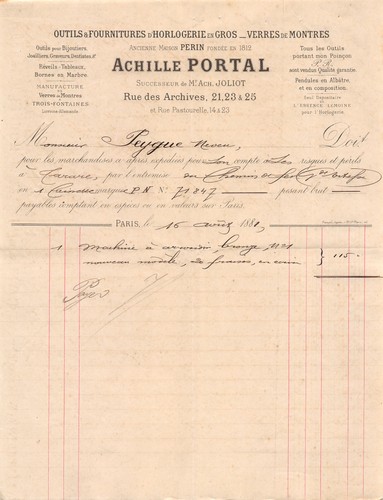 OUTILS & FOURNITURES D'HORLOGERIE EN GROS — VERRES DE MONTRES
Outils pour Bijoutiers,
Joailliers, Graveurs, Dentistes, &ª
Réveils-Tableaux,
Bornes en Marbre.
MANUFACTURE
de
Verres de Montres
à TROIS-FONTAINES
Lorraine Allemande
ANCIENNE MAISON PERIN FONDÉE EN 1812
ACHILLE PORTAL
SUCCESSEUR DE Mr. ACH. JOLIOT
Rue des Archives, 21, 23 & 25
et Rue Pastourelle, 14 à 23
Tous les Outils
portant mon Poinçon
P. R.
sont vendus Qualité garantie.
Pendules en Albâtre,
et en composition.
Seul Dépositaire
de
L'ENCRINE LEMOINE
pour l'Horlogerie
Monsieur Peygue Neveu, Doit
pour les marchandises ci-après expédiées pour son compte & ses risques et périls
à, par l'entremise du Chemin de fer
en 1 Caisse marque P N Nº 71847 pesant brut
payables comptant en espèces ou en valeurs sur Paris.
PARIS, le 16 août 188
1 Machine à arrondir, bronze, Nº1
nouveau modèle, 20 fraises, en écrin } 115 "